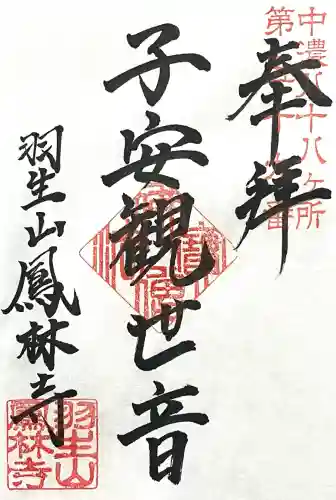 中濃八十八ヶ所
奉拝
子安観世音
羽生山鳳林寺
羽生山
鳳林寺